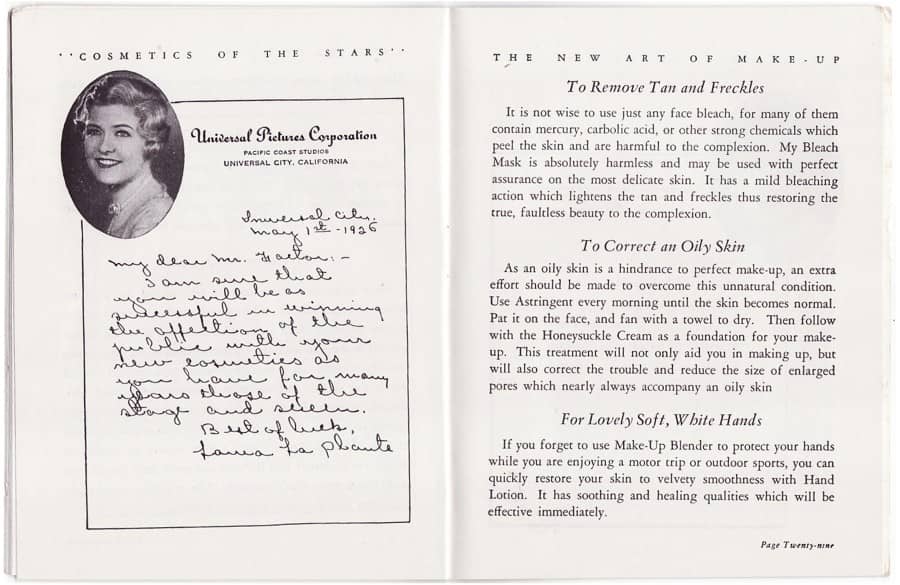 ··COSMETICS OF THE STARS··
Universal Pictures Corporation
PACIFIC COAST STUDIOS
UNIVERSAL CITY, CALIFORNIA
Universal City.
May 1st - 1926
My dear Mr. Factor: -
I am sure that
you will be as
successful in winning
the affection of the
public with your
new cosmetics as
you have for many
years those of the
stage and screen.
Best of luck,
Laura La Plante
THE NEW ART OF MAKE-UP
To Remove Tan and Freckles
It is not wise to use just any face bleach, for many of them
contain mercury, carbolic acid, or other strong chemicals which
peel the skin and are harmful to the complexion. My Bleach
Mask is absolutely harmless and may be used with perfect
assurance on the most delicate skin. It has a mild bleaching
action which lightens the tan and freckles thus restoring the
true, faultless beauty to the complexion.
To Correct an Oily Skin
As an oily skin is a hindrance to perfect make-up, an extra
effort should be made to overcome this unnatural condition.
Use Astringent every morning until the skin becomes normal.
Pat it on the face, and fan with a towel to dry. Then follow
with the Honeysuckle Cream as a foundation for your make-
up. This treatment will not only aid you in making up, but
will also correct the trouble and reduce the size of enlarged
pores which nearly always accompany an oily skin
For Lovely Soft, White Hands
If you forget to use Make-Up Blender to protect your hands
while you are enjoying a motor trip or outdoor sports, you can
quickly restore your skin to velvety smoothness with Hand
Lotion. It has soothing and healing qualities which will be
effective immediately.
Page Twenty-nine